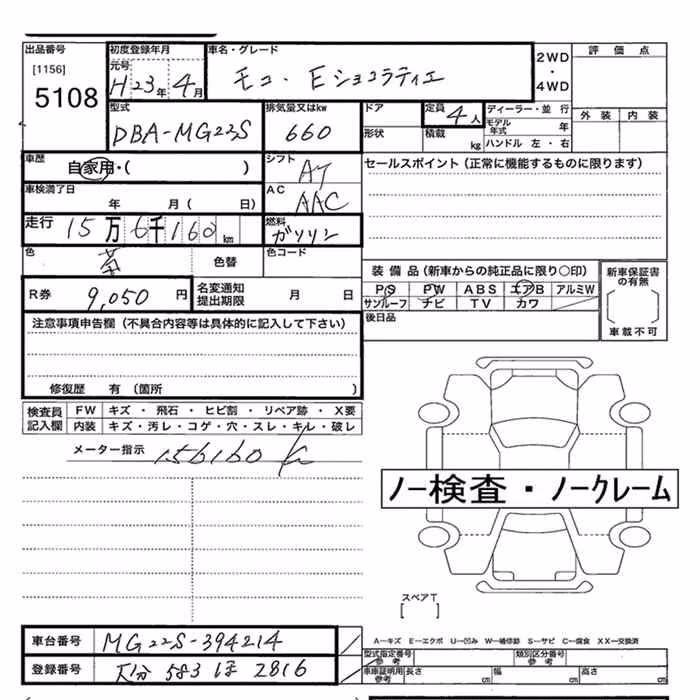 出品番号 初度登録年月 車名・グレード 2WD・4WD 評価点
[1156] 5108 元号 H23年4月 モコ・Eショコラティエ
型式 排気量又はkw ドア 定員 4人 ディーラー・並行 外装 内装
DBA-MG22S 660 形状 積載 kg モデル年式 年
ハンドル 左・右
車歴 自家用・( ) シフト AT セールスポイント (正常に機能するものに限ります)
車検満了日 年 月( 日) AC AAC
走行 15万6千160km 燃料 ガソリン
色 色替 色コード
装備品 (新車からの純正品に限り○印) 新車保証書の有無
R券 9,050円 名変通知提出期限 月 日 PS PW ABS エアB アルミW
サンルーフ ナビ TV カワ 車載不可
注意事項申告欄 (不具合内容等は具体的に記入して下さい) 後日品
修復歴 有 (箇所 )
検査員記入欄 FW キズ・飛石・ヒビ割・リペア跡・X要
内装 キズ・汚レ・コゲ・穴・スレ・キレ・破レ
メーター指示 156160
ノー検査・ノークレーム
スペアT
[ ]
A-キズ E-エクボ U-凹み W-補修跡 S-サビ C-腐食 XX-交換済
車台番号 MG22S-394214 型式指定番号 参考 類別区分番号 参考
登録番号 大分 583 ほ 2816 車庫証明用 参考 長さ cm 幅 cm 高さ cm